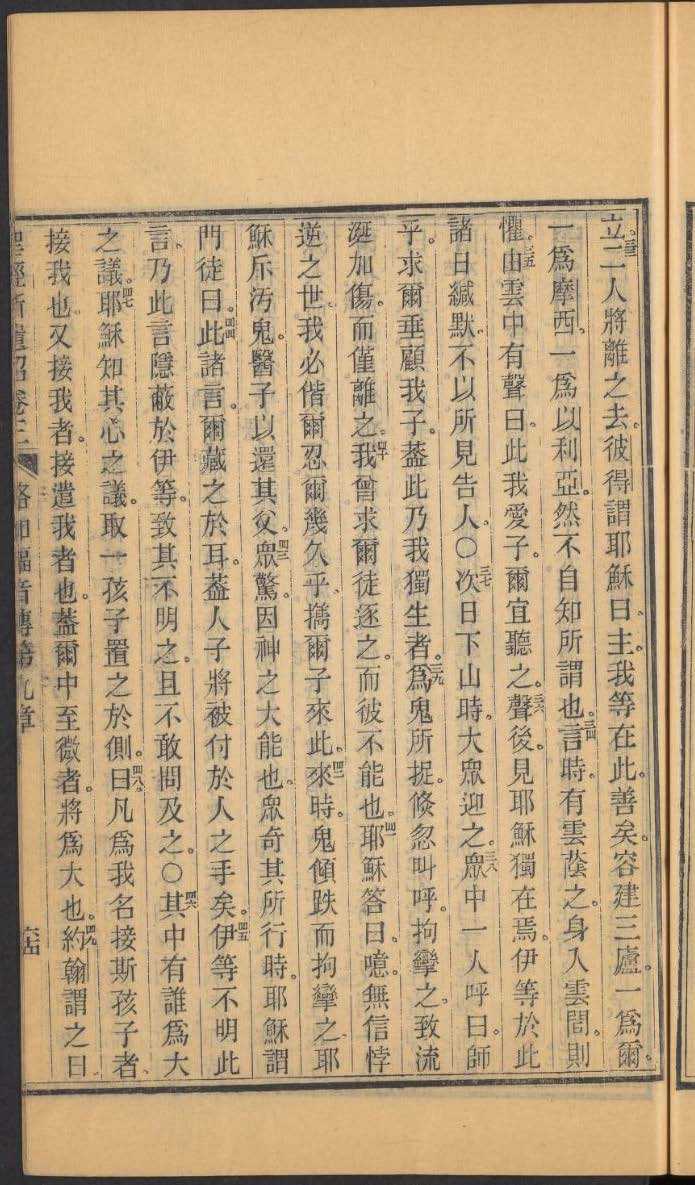 立。三三二人將離之去。彼得謂耶穌曰。主。我等在此。善矣。容建三廬。一爲爾。
一爲摩西。一爲以利亞。然不自知所謂也。三四言時。有雲蔭之。身入雲間。則
懼。三五由雲中有聲曰。此我愛子。爾宜聽之。三六聲後。見耶穌獨在焉。伊等於此
諸日緘默。不以所見告人。〇三七次日下山時。大眾迎之。三八眾中一人呼曰。師
乎。求爾垂顧我子。葢此乃我獨生者。三九爲鬼所捉。倏忽叫呼。拘攣之。致流
涎加傷。而僅離之。四十我曾求爾徒逐之。而彼不能也。四一耶穌答曰。噫。無信悖
逆之世。我必偕爾忍爾幾久乎。攜爾子來此。四二來時。鬼傾跌而拘攣之。耶
穌斥汚鬼。醫子以還其父。四三眾驚。因神之大能也。眾奇其所行時。耶穌謂
門徒曰。四四此諸言。爾藏之於耳。葢人子將被付於人之手矣。四五伊等不明此
言。乃此言隱蔽於伊等。致其不明之。且不敢問及之。〇四六其中有誰爲大
之議。四七耶穌知其心之議。取一孩子置之於側。四八曰。凡爲我名接斯孩子者。
接我也。又接我者。接遣我者也。葢爾中至微者。將爲大也。四九約翰謂之曰
聖經新遺詔 卷三 路加福音傳第九章